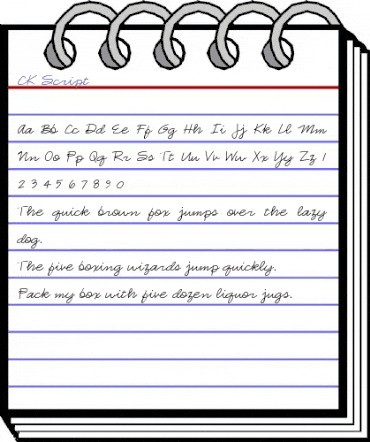 CK Script
Aa Bb Cc Dd Ee Ff Gg Hh Ii Jj Kk Ll Mm
Nn Oo Pp Qq Rr Ss Tt Uu Vv Ww Xx Yy Zz 1
2 3 4 5 6 7 8 9 0
The quick brown fox jumps over the lazy
dog.
The five boxing wizards jump quickly.
Pack my box with five dozen liquor jugs.